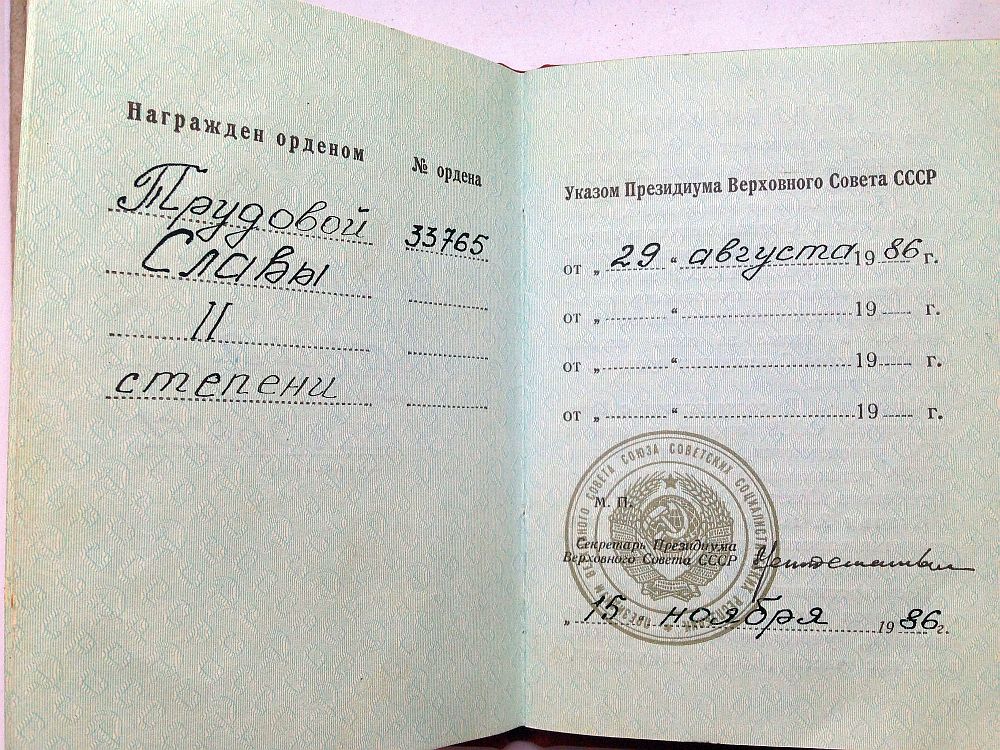 Награжден орденом № ордена
Трудовой 33765
Славы
II
степени
Указом Президиума Верховного Совета СССР
от „ 29 “ августа 1986 г.
от „ “ 19 г.
от „ “ 19 г.
от „ “ 19 г.
СОВЕТА СОЮЗА СОВЕТСКИХ
М. П.
Секретарь Президиума
Верховного Совета СССР
„ 15 ноября 1986 г.